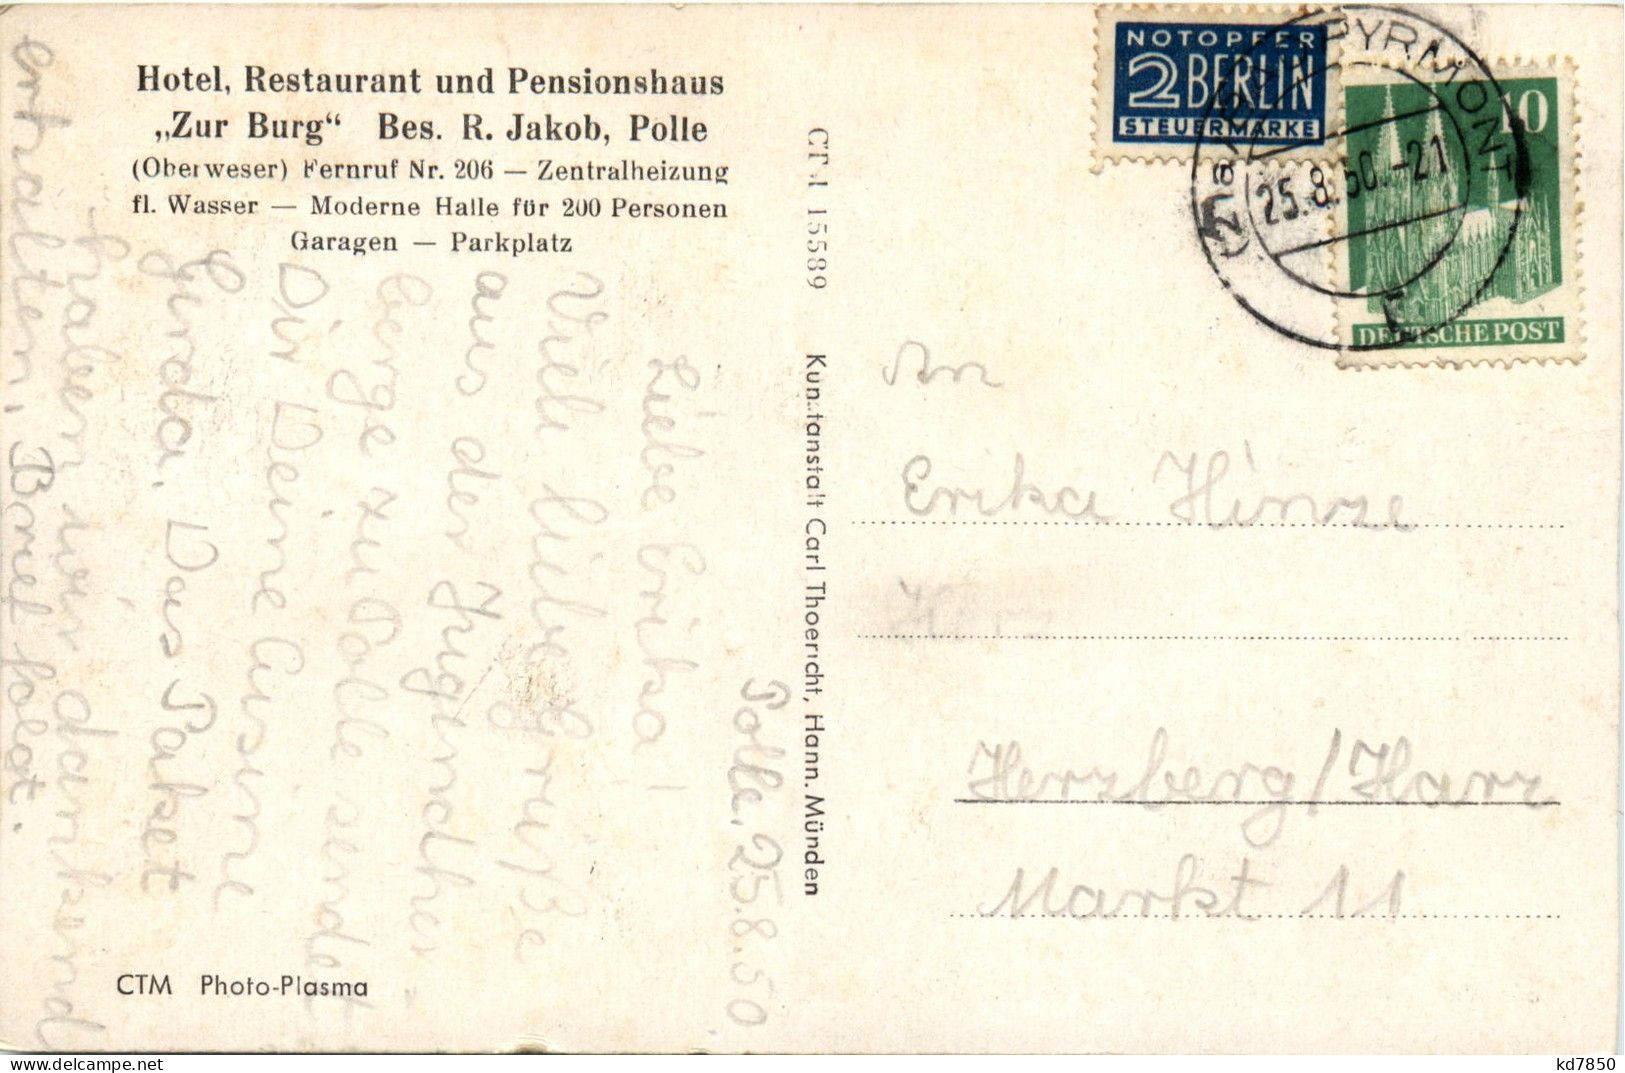 Hotel, Restaurant und Pensionshaus
„Zur Burg“ Bes. R. Jakob, Polle
(Oberweser) Fernruf Nr. 206 — Zentralheizung
fl. Wasser — Moderne Halle für 200 Personen
Garagen — Parkplatz
Polle, 25.8.50
Liebe Erika!
Viele liebe Grüße
aus der Jugendher-
berge zu Polle sendet
Dir Deine Cusine
Das Paket
haben wir dankend
erhalten, Brief folgt.
CTM Photo-Plasma
CTM 15589 Kunstanstalt Carl Thoericht, Hann. Münden
NOTOPFER
2 BERLIN
STEUERMARKE
BAD PYRMONT
25.8.50.-21
10
DEUTSCHE POST
An
Erika Hinze
Herz
Herzberg/Harz
Markt 11
kd7850